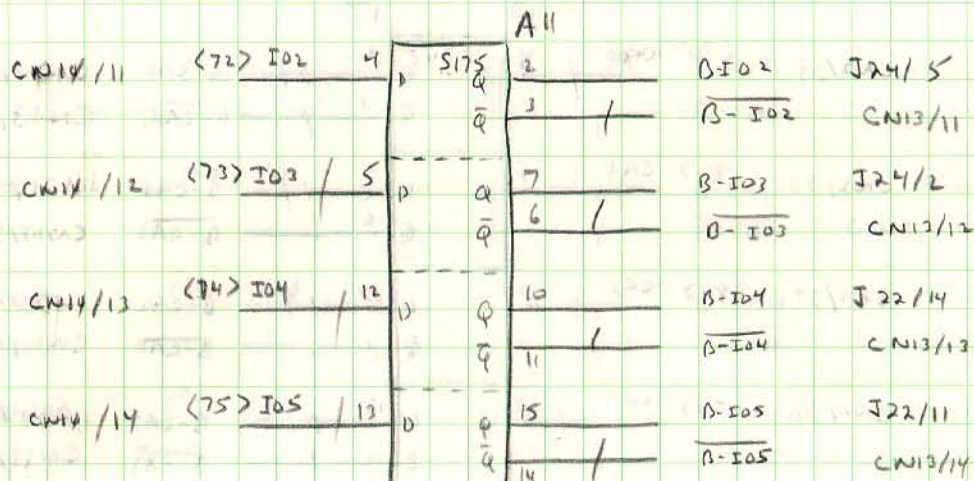 A11
CN14/11 <72> I02 4 S175 2 B-I02 J24/5
D Q
Q̅ 3 B-I02 CN13/11
CN14/12 <73> I03 5 D Q 7 B-I03 J24/2
Q̅ 6 B-I03 CN13/12
CN14/13 <74> I04 12 D Q 10 B-I04 J22/14
Q̅ 11 B-I04 CN13/13
CN14/14 <75> I05 13 D Q 15 B-I05 J22/11
Q̅ 14 B-I05 CN13/14